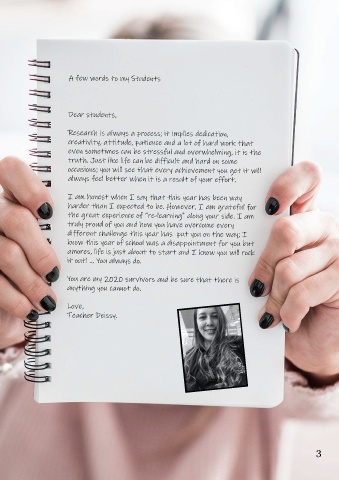 A few words to my Students
Dear students,
Research is always a process; it implies dedication,
creativity, attitude, patience and a lot of hard work that
even sometimes can be stressful and overwhelming, it is the
truth. Just like life can be difficult and hard on some
occasions; you will see that every achievement you get it will
always feel better when it is a result of your effort.
I am honest when I say that this year has been way
harder than I expected to be. However, I am grateful for
the great experience of "re-learning" along your side. I am
truly proud of you and how you have overcome every
different challenge this year has put you on the way; I
know this year of school was a disappointment for you but
amores, life is just about to start and I know you will rock
it out! ... You always do.
You are my 2020 survivors and be sure that there is
anything you cannot do.
Love,
Teacher Deissy.
3